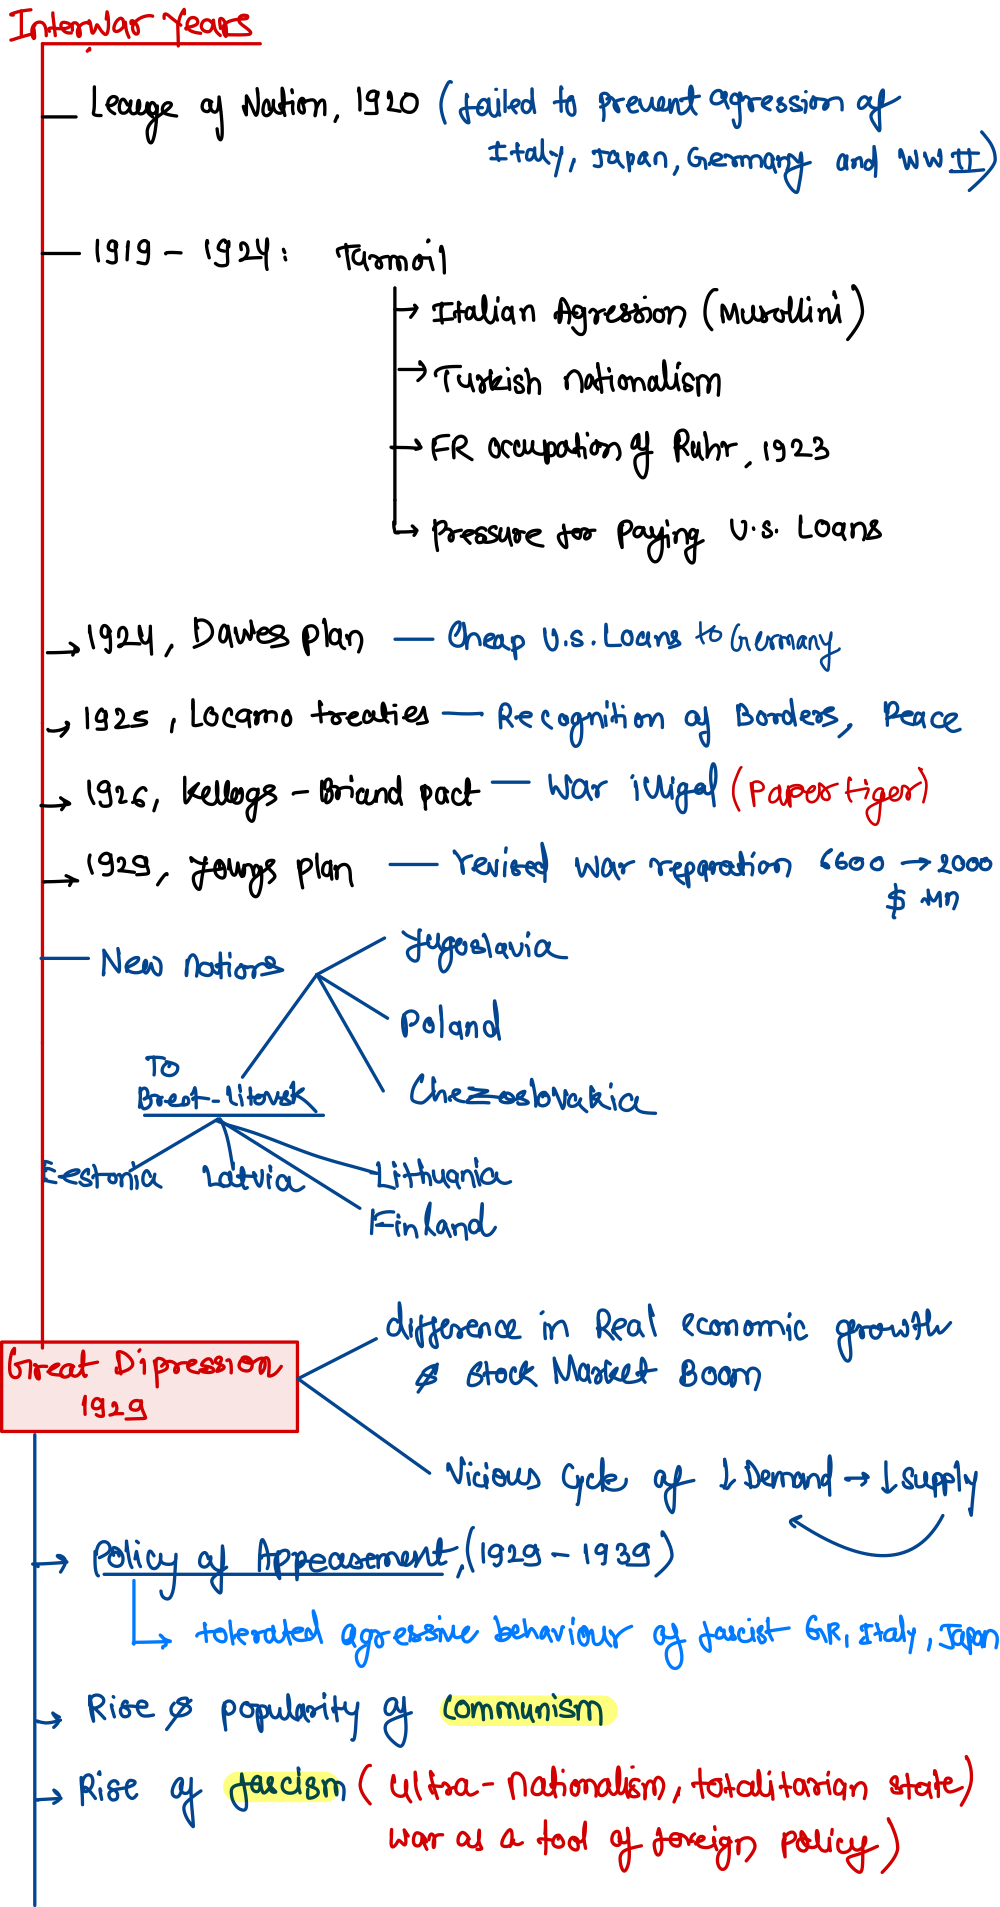 Interwar Years
Leauge of Nation, 1920 (failed to prevent agression of
Italy, Japan, Germany and WW II)
1919 - 1924: Tarmoil
Italian Agression (Musollini)
Turkish nationalism
FR occupation of Ruhr, 1923
Pressure for paying U.S. Loans
1924, Dawes plan — Cheap U.S. Loans to Germany
1925, Locarno treaties — Recognition of Borders, Peace
1926, Kellogs - Briand pact — War illigal (Paper tiger)
1929, Youngs plan — revised war reparation 6600 → 2000
$ Mn
New nations
Yugoslavia
Poland
To
Brest-Litovsk
Chezoslovakia
Eestonia Latvia Lithuania
Finland
difference in Real economic growth
& Stock Market Boom
Great Dipression
1929
Vicious Cycle of ↓ Demand → ↓ supply
Policy of Appeasement, (1929 - 1939)
tolerated agressive behaviour of fascist GR, Italy, Japan
Rise & popularity of Communism
Rise of fascism (ultra-nationalism, totalitarian state)
war as a tool of foreign policy)